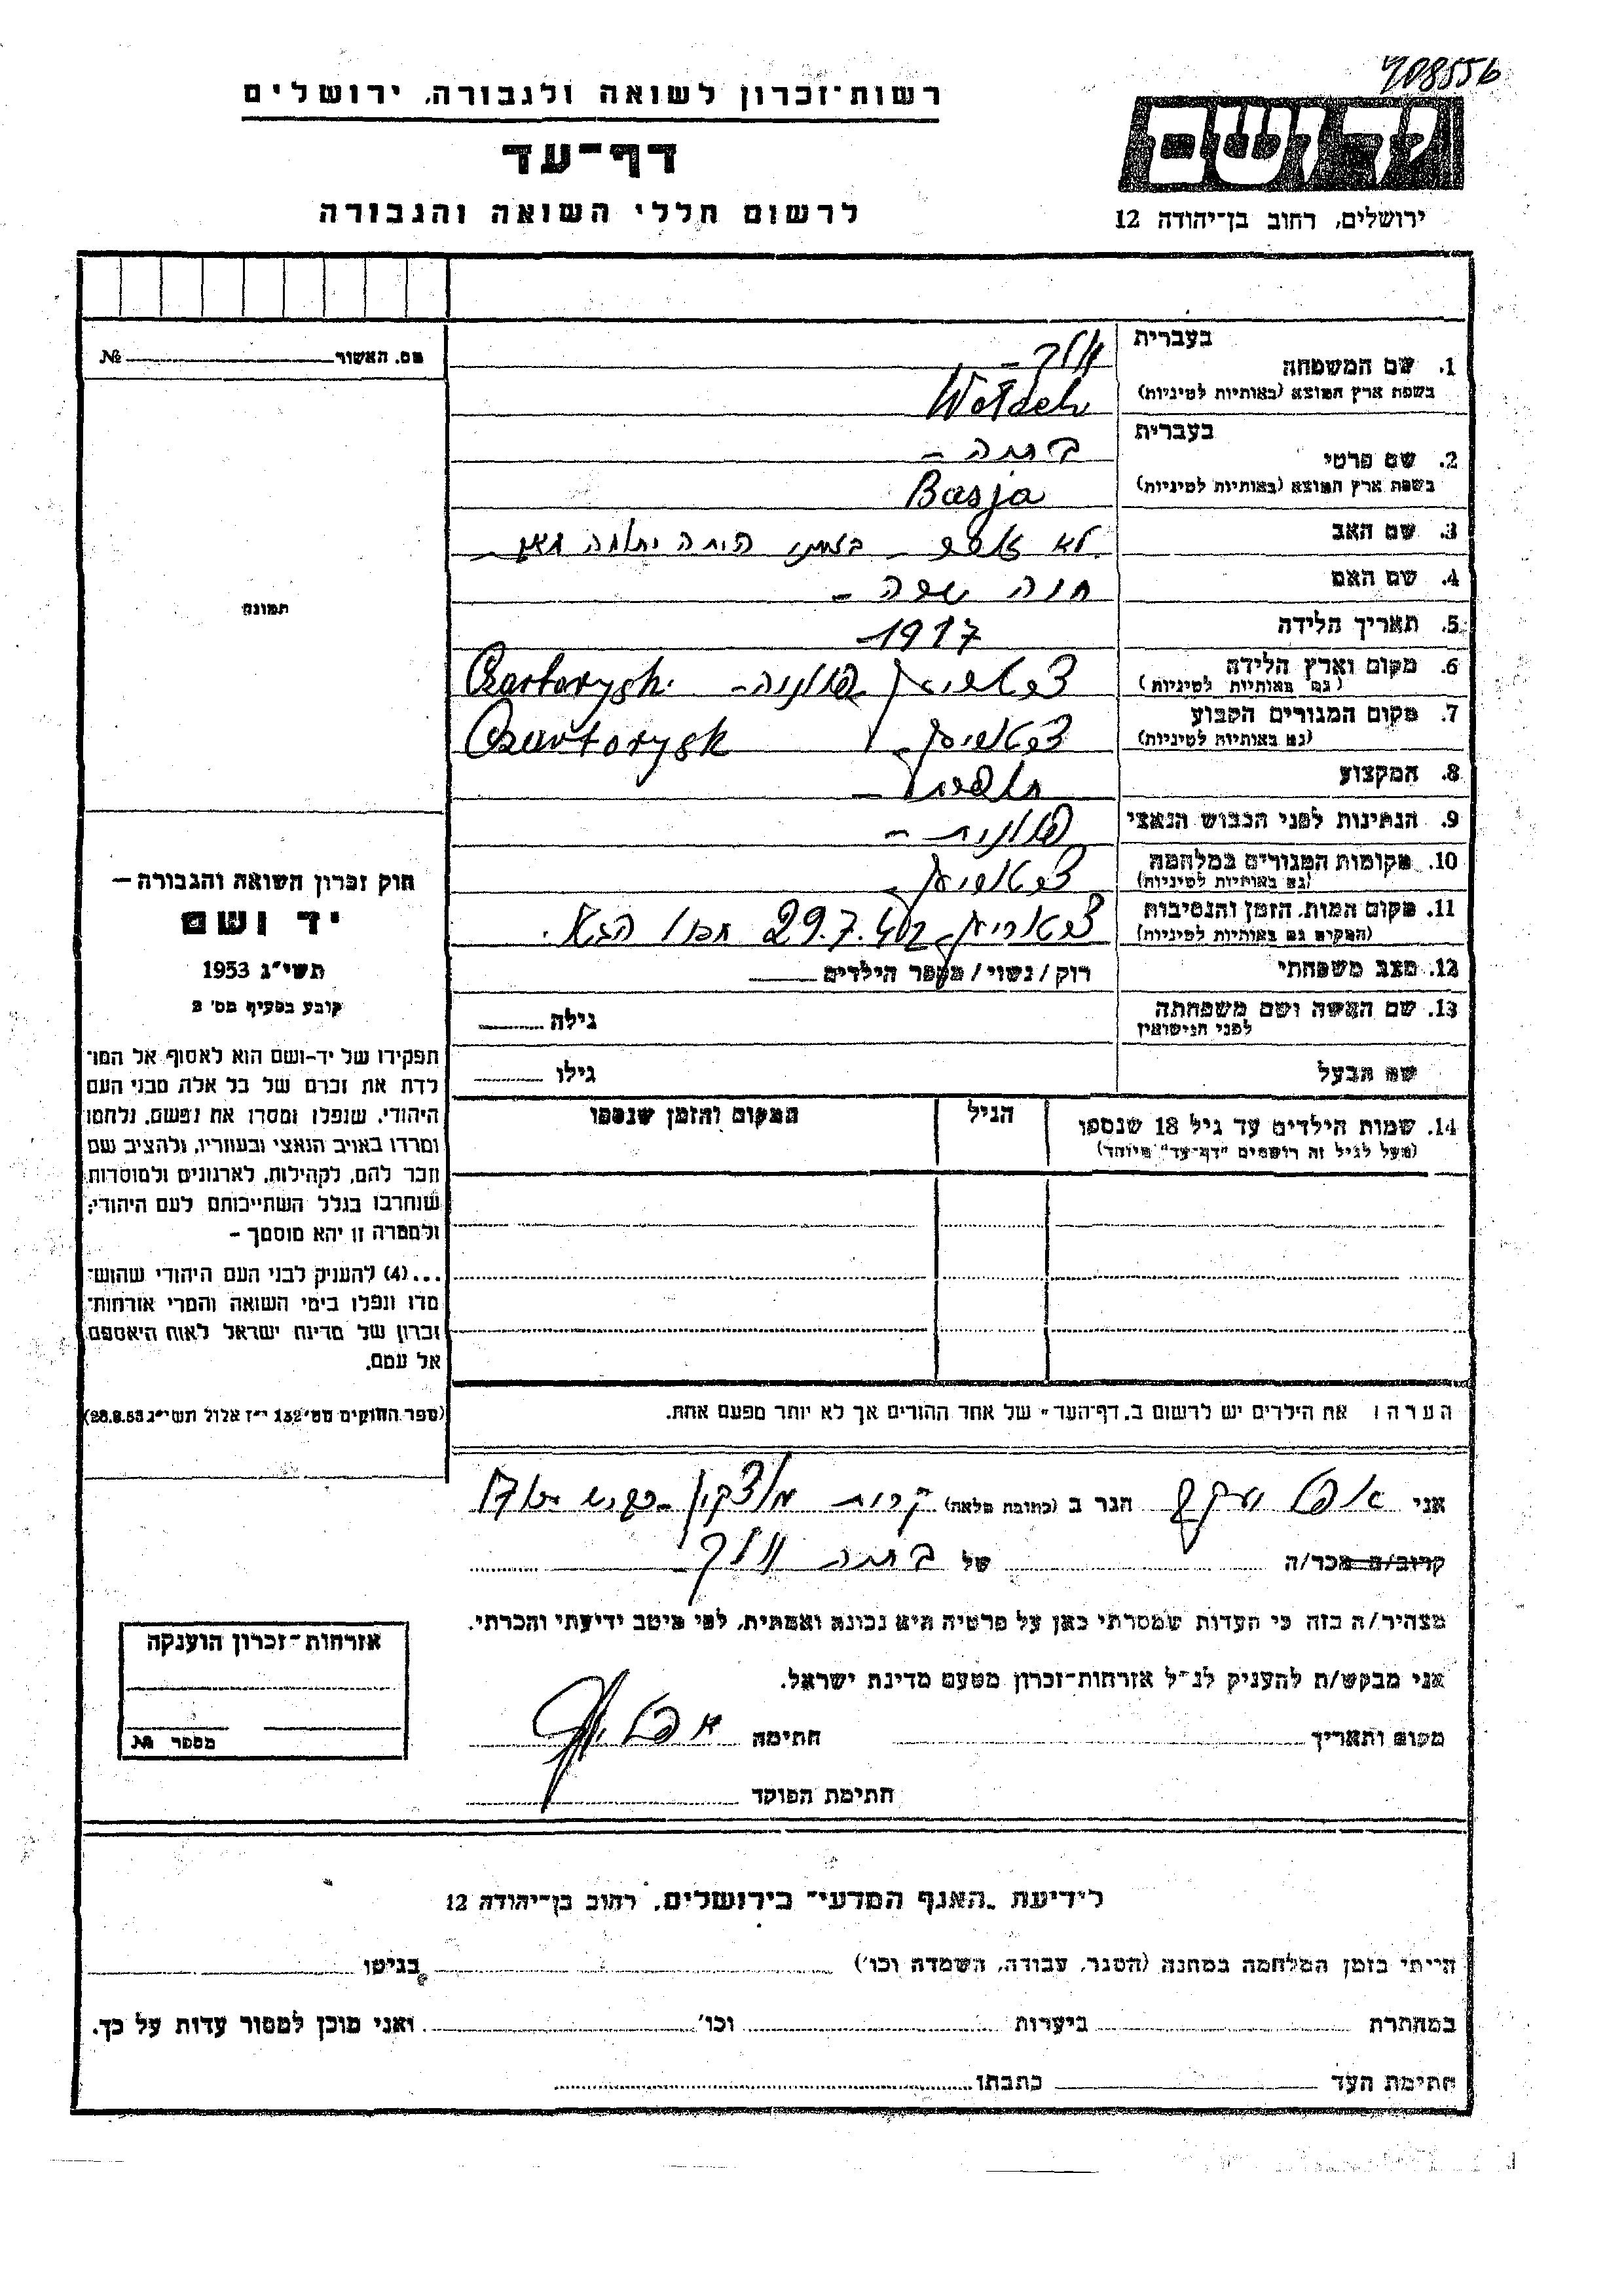 908556
רשות־זכרון לשואה ולגבורה, ירושלים
דף־עד
לרשום חללי השואה והגבורה
יד ושם
ירושלים, רחוב בן־יהודה 12
מס. האשור № 
בעברית
1. שם המשפחה
בשפת ארץ המוצא (באותיות לטיניות)
בעברית
2. שם פרטי בתיה –
בשפת ארץ המוצא (באותיות לטיניות) Basja
3. שם האב לא
4. שם האם חנה –
5. תאריך הלידה 1917–
6. מקום וארץ הלידה פולניה– Czartorysk.
(גם באותיות לטיניות)
7. מקום המגורים הקבוע Czartorysk
(גם באותיות לטיניות)
8. המקצוע
9. הנתינות לפני הכבוש הנאצי פולנית –
10. מקומות המגורים במלחמה
(גם באותיות לטיניות)
11. מקום המות, הזמן והנסיבות 29.7.42
(המקום גם באותיות לטיניות)
12. מצב משפחתי רוק / נשוי / מספר הילדים
13. שם האשה ושם משפחתה גילה
לפני הנישואין
שם הבעל גילו
14. שמות הילדים עד גיל 18 שנספו הגיל המקום והזמן שנספו
(מעל לגיל זה רושמים "דף־עד" מיוחד)
הערה: את הילדים יש לרשום ב„דף־העד" של אחד ההורים אך לא יותר מפעם אחת.
תמונה
חוק זכרון השואה והגבורה —
יד ושם
תשי"ג 1953
קובע בסעיף מס' 2
תפקידו של יד-ושם הוא לאסוף אל המו־
לדת את זכרם של כל אלה מבני העם
היהודי, שנפלו ומסרו את נפשם, נלחמו
ומרדו באויב הנאצי ובעוזריו, ולהציב שם
וזכר להם, לקהילות, לארגונים ולמוסדות
שנחרבו בגלל השתייכותם לעם היהודי;
ולמטרה זו יהא מוסמך –
...(4) להעניק לבני העם היהודי שהוש־
מדו ונפלו בימי השואה והמרי אזרחות־
זכרון של מדינת ישראל לאות היאספם
אל עמם.
(ספר החוקים מס' 132 י"ז אלול תשי"ג 28.8.53)
אני הגר ב (כתובת מלאה) קרית מוצקין
קרוב/ה מכר/ה של בתיה
מצהיר/ה בזה כי העדות שמסרתי כאן על פרטיה היא נכונה ואמתית, לפי מיטב ידיעתי והכרתי.
אני מבקש/ת להעניק לנ"ל אזרחות־זכרון מטעם מדינת ישראל.
מקום ותאריך חתימה
חתימת הפוקד
אזרחות־זכרון הוענקה
מספר №
לידיעת „האגף המדעי" בירושלים, רחוב בן־יהודה 12
הייתי בזמן המלחמה במחנה (הסגר, עבודה, השמדה וכו') בגיטו
במחתרת ביערות וכו' ואני מוכן למסור עדות על כך.
חתימת העד כתבתו